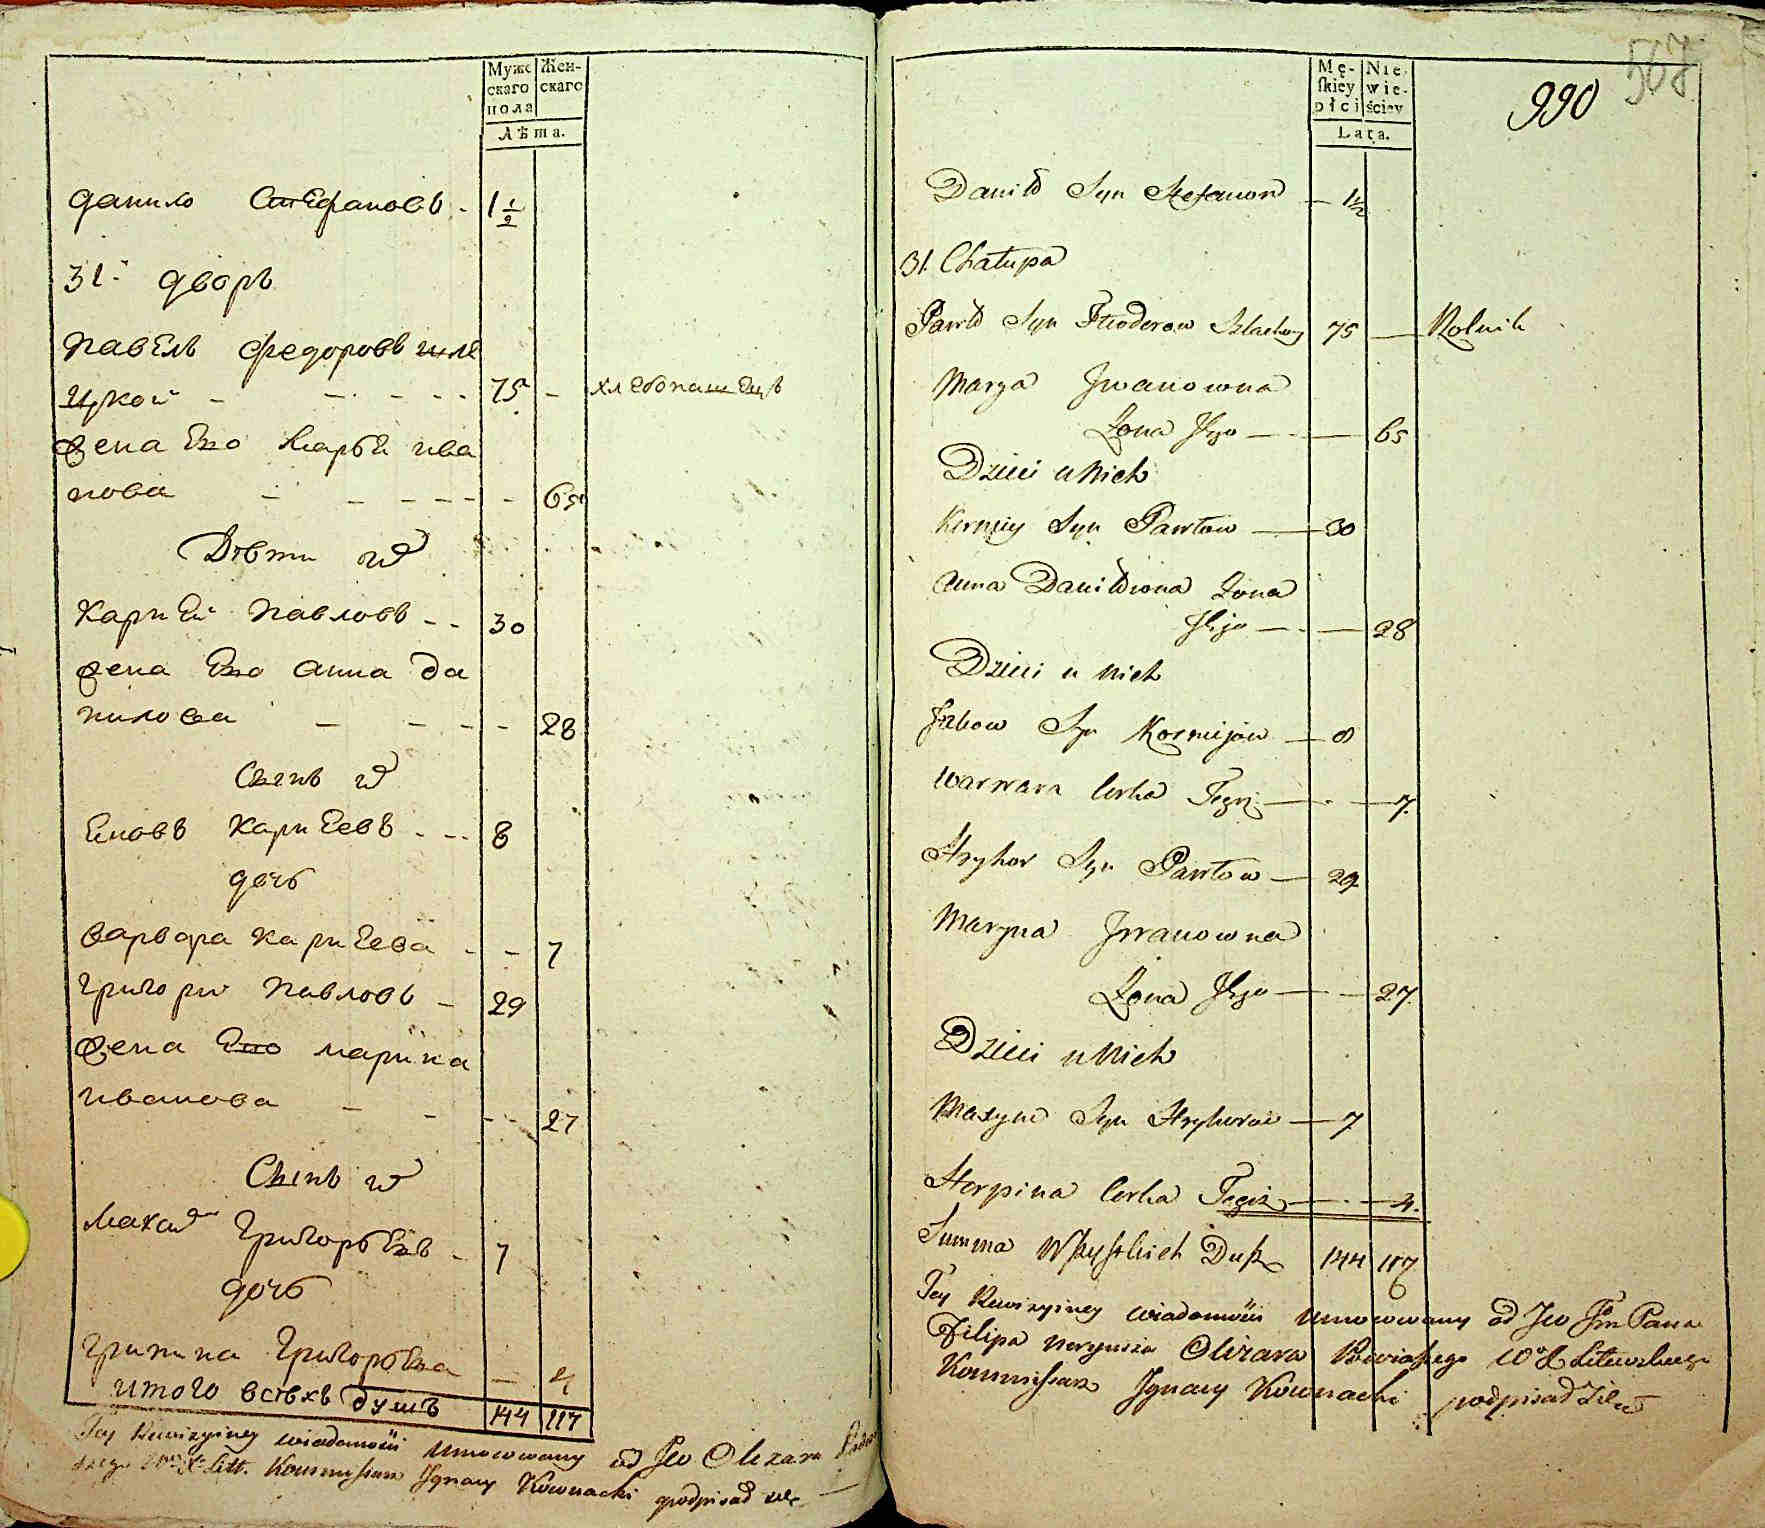 Муже
скаго
пола
Жен-
скаго
Лѣта.
данило Стефановъ 1 1/2
31. дворъ
павелъ федоровъ шле
цкой 75 - хлебопашецъ
жена Ево марья ива
нова 65
Дѣти их
карней павловъ 30
жена Ево анна да
нилова 28
Сынъ их
карнеевъ 8
дочь
варвара карнеева 7
григори павловъ 29
жена Ево марина
иванова 27
Сынъ их
григорьевъ 7
дочь
григорьева 4
итого всѣхъ душъ 144 117
Tey Rewizyiney wiadomości umocowany od Jeo Olizara
Litt. Kommissarz Ignacy Kownacki podpisał się
Mę-
skiey
płci
Nie
wie-
ściey
Lata.
990
567
Daniło Syn Stefanow 1 1/2
31. Chałupa
Pawło Syn Fteoderow 75 Rolnik
Marya Jwanowna
Żona Jego 65
Dzieci u Nich
Korniey Syn Pawłow 30
Anna Daniłowna Żona
Jego 28
Dzieci u Nich
Syn Korniejow 8
Warwara Corka Tegoż 7.
Hryhor Syn Pawłow 29
Maryna Jwanowna
Żona Jego 27
Dzieci u Nich
Maxym Syn Hryhorow 7
Horpina Corka Tegoż 4.
Summa Wszystkich Dusz 144 117
Tey Rewizyiney wiadomości umocowany od Jeo Jm Pana
Filipa Neryusza Olizara Litewskiego
Kommissarz Ignacy Kownacki podpisał się